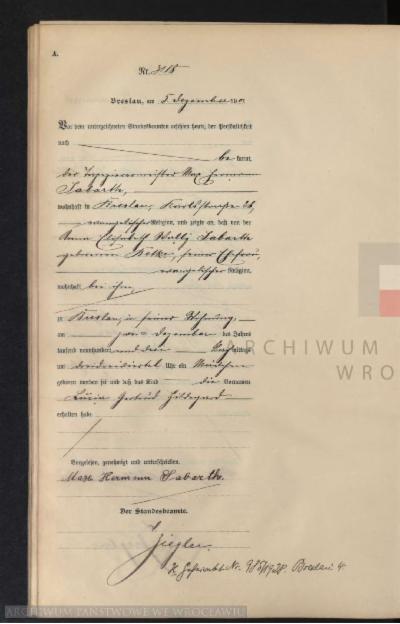 A.
Nr. 218
Breslau, am 5 Dezember 190
Vor dem unterzeichneten Standesbeamten erschien heute, der Persönlichkeit
nach
be kannt,
der Tapezierermeister Max Hermann
Sabarth,
wohnhaft in Breslau, Karlstraße
evangelischer Religion, und zeigte an, daß von der
Anna Elisabeth Sabarth
geborenen seiner Ehefrau,
evangelischer Religion,
wohnhaft bei ihm,
zu Breslau, in seiner Wohnung,
am Dezember des Jahres
tausend neunhundert und drei Nachmittags
um Uhr ein Mädchen
geboren worden sei und daß das Kind die Vornamen
Lucia Gertrud Hildegard
erhalten habe
Vorgelesen, genehmigt und unterschrieben.
Max Hermann Sabarth.
Der Standesbeamte.
Ziegler.
Breslau
ARCHIWUM
WRO
ARCHIWUM PAŃSTWOWE WE WROCŁAWIU